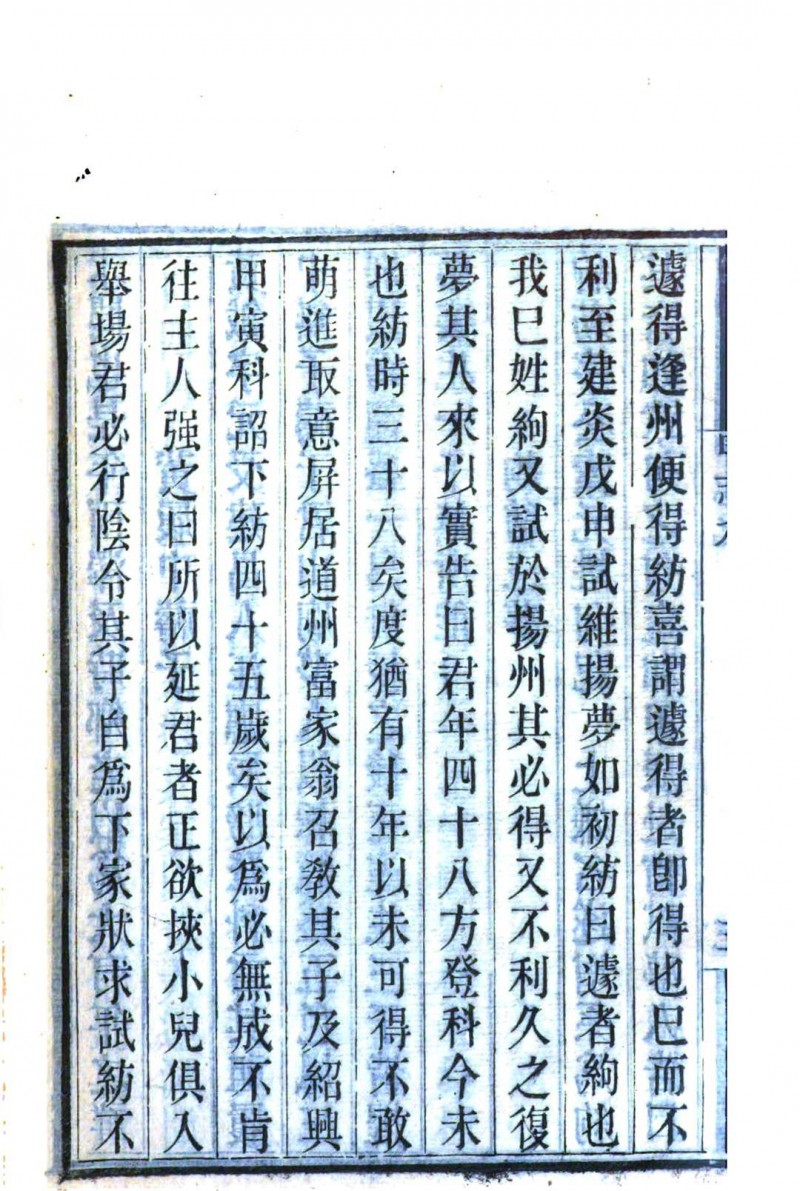 遽得逢州便得紡喜謂遽得者卽得也巳而不
利至建炎戊申試維揚夢如初紡曰遽者絢也
我巳姓絢又試於揚州其必得又不利久之復
夢其人來以實告曰君年四十八方登科今未
也紡時三十八矣度猶有十年以未可得不敢
萌進取意屏居道州富家翁召敎其子及紹興
甲寅科詔下紡四十五歲矣以爲必無成不肯
往主人强之曰所以延君者正欲挾小兒俱入
舉場君必行陰令其子自爲下家狀求試紡不